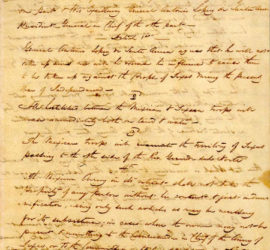 on part & this Gentleman General Antonio Lopez de Santa Anna
President General in Chief of the other part
Article 1st
General Antonio Lopez de Santa Anna agrees that he will not
take up arms nor will he exercise his influence to cause them
to be taken up against the People of Texas during the present
War of Independence
2
Hostilities between the Mexican & Texian troops will
cease immediately both on land & water
3
The Mexican troops will evacuate the territory of Texas
passing to the other side of the Rio Grande del Norte
4
The Mexican Army in its retreat shall not take the
property of any person without his consent & just indem
nification, using only such articles as may be necessary
for its subsistence, in cases where the owner may not be
present